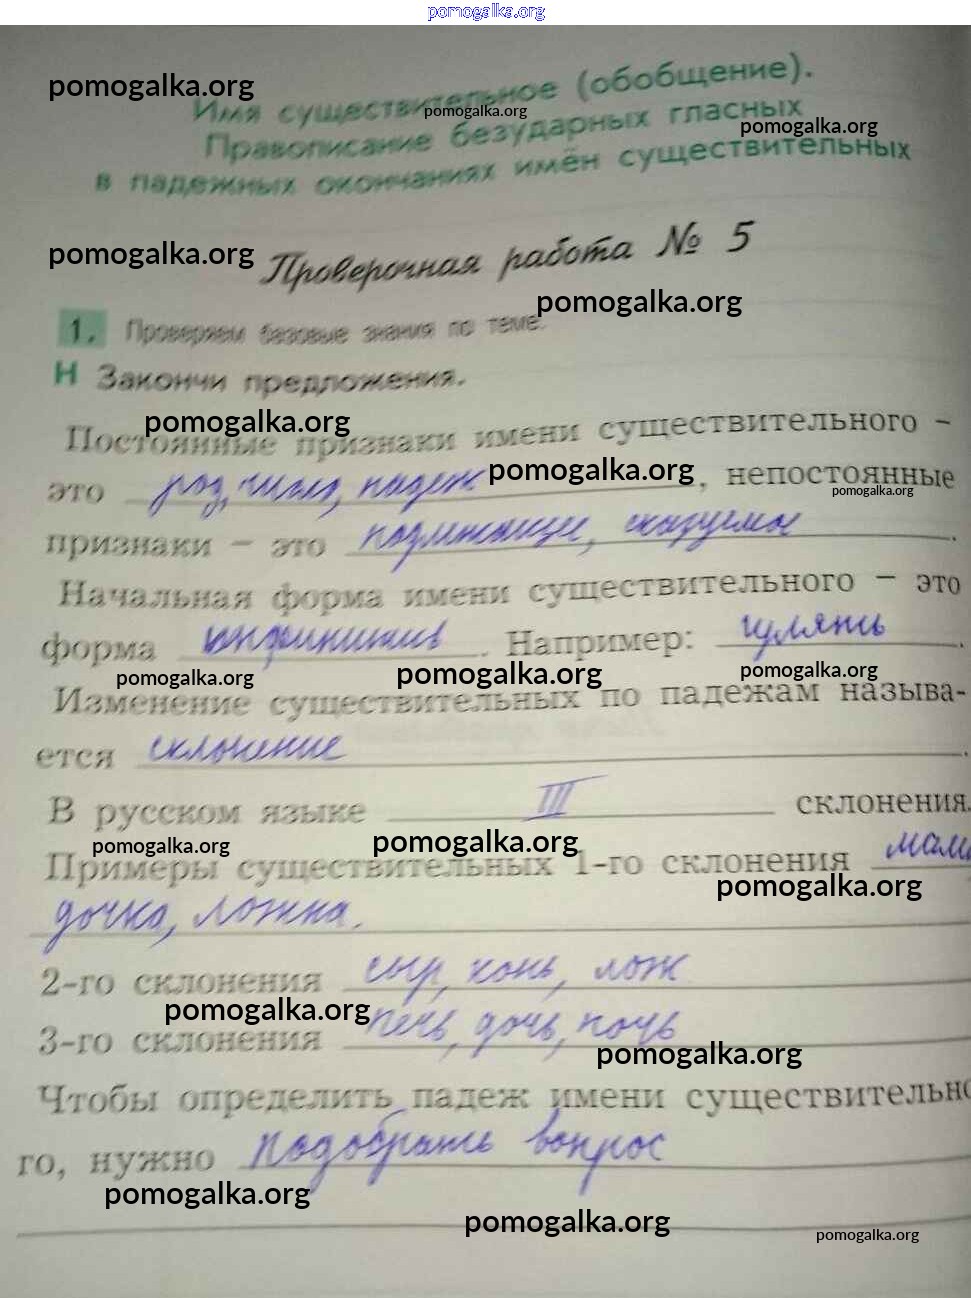 pomogalka.org
pomogalka.org
Имя существительное (обобщение).
pomogalka.org
Правописание безударных гласных
pomogalka.org
в падежных окончаниях имён существительных
pomogalka.org
Проверочная работа № 5
pomogalka.org
1. Проверяем базовые знания по теме.
Н Закончи предложения.
pomogalka.org
Постоянные признаки имени существительного –
pomogalka.org
это род, число, падеж, непостоянные
pomogalka.org
признаки – это подлежащее, сказуемое.
Начальная форма имени существительного – это
форма инфинитив. Например: гулять.
pomogalka.org pomogalka.org pomogalka.org
Изменение существительных по падежам называ-
ется склонение.
В русском языке III склонения.
pomogalka.org pomogalka.org
Примеры существительных 1-го склонения мама
pomogalka.org
дочка, ложка.
2-го склонения сыр, конь,
pomogalka.org
3-го склонения печь, дочь, ночь
pomogalka.org
Чтобы определить падеж имени существительно
го, нужно подобрать вопрос
pomogalka.org
pomogalka.org
pomogalka.org